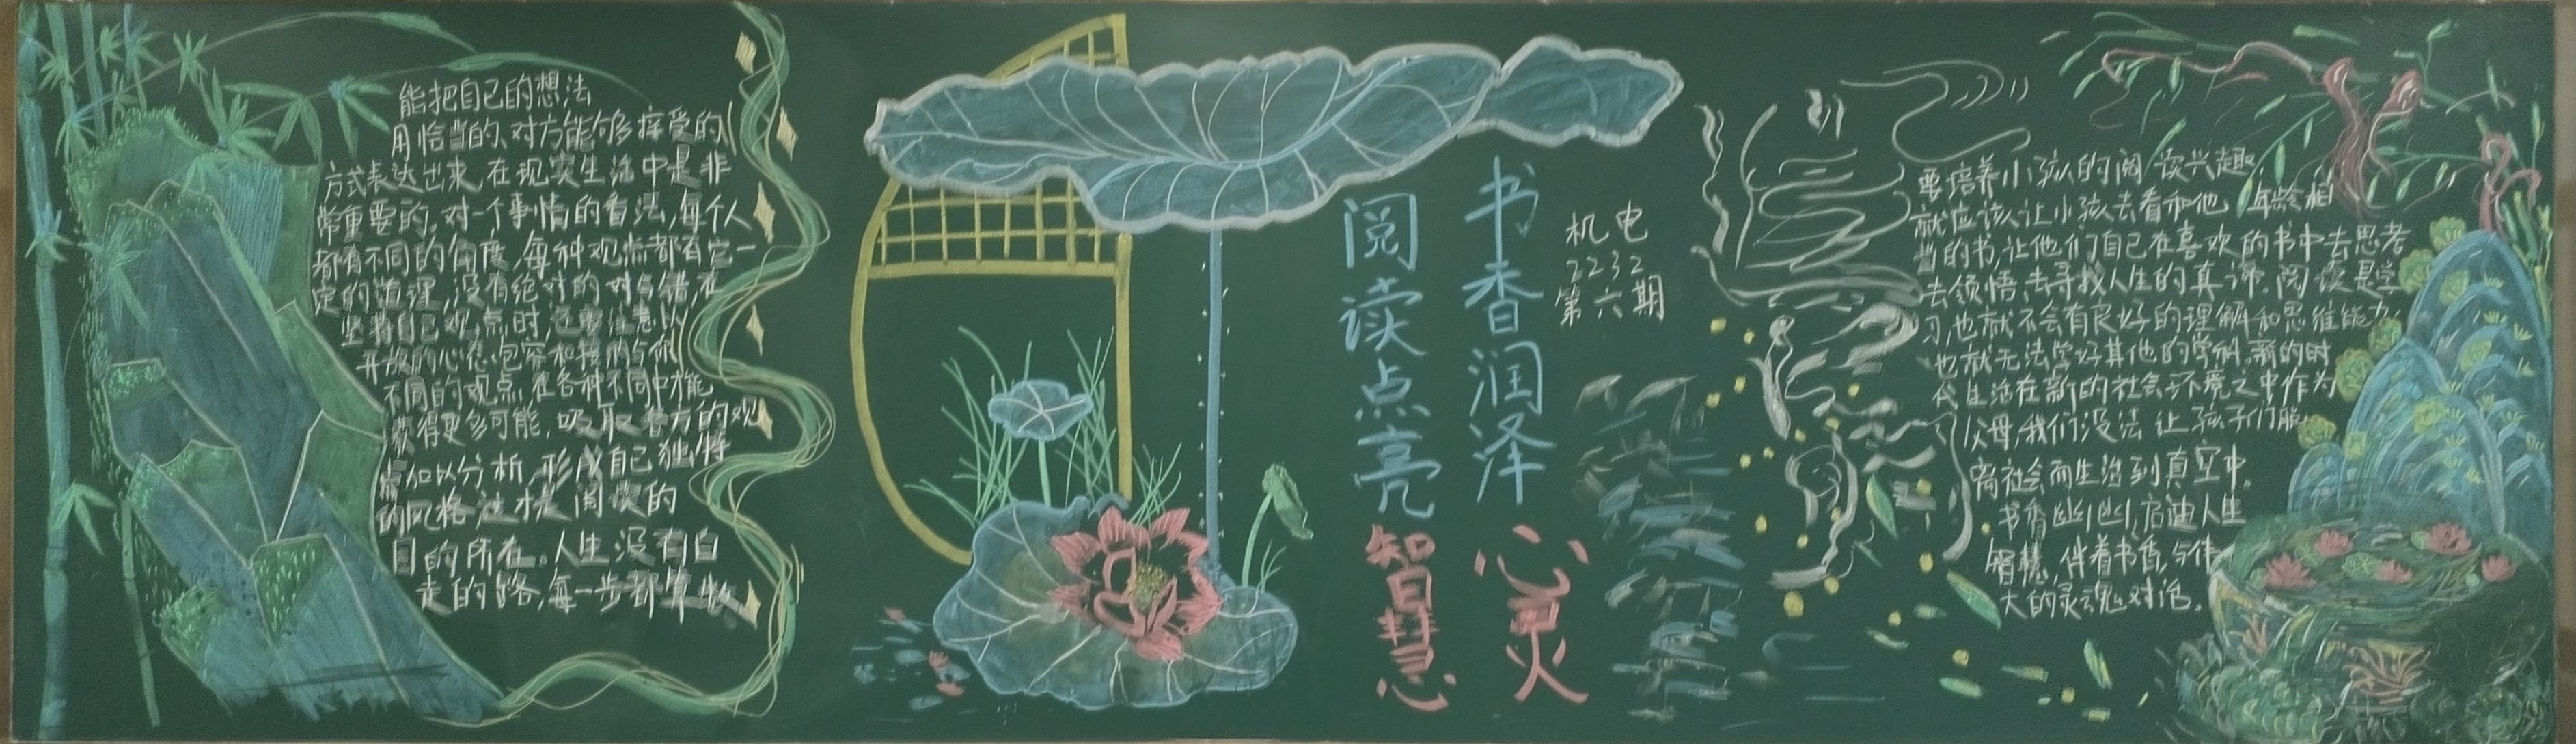 能把自己的想法
用恰当的、对方能够接受的
方式表达出来,在现实生活中是非
常重要的,对一个事情的看法,每个人
都有不同的角度,每种观点都有它一
定的道理,没有绝对的对与错,在
坚持自己观点时,也要注意以
开放的心态包容和接纳与你
不同的观点,在各种不同中才能
获得更多可能,吸取各方的观
点加以分析,形成自己独特
的风格,这才是阅读的
目的所在。人生没有白
走的路,每一步都算数
书香润泽心灵
阅读点亮智慧
机电
2232
第六期
要培养小孩的阅读兴趣,
就应该让小孩去看和他年龄相
当的书,让他们自己在喜欢的书中去思考
去领悟,去寻找人生的真谛。阅读是学
习,也就不会有良好的理解和思维能力,
也就无法学好其他的学科,新的时
代生活在新的社会环境之中作为
父母,我们没法让孩子们脱
离社会而生活到真空中。
书香幽幽,启迪人生
智慧,伴着书香,与伟
大的灵魂对话。